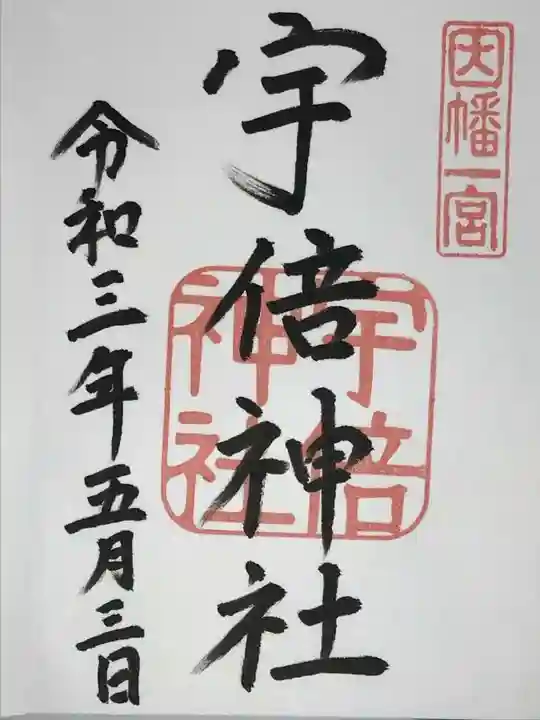 因幡一宮
宇倍神社
宇倍
神社
令和三年五月三日